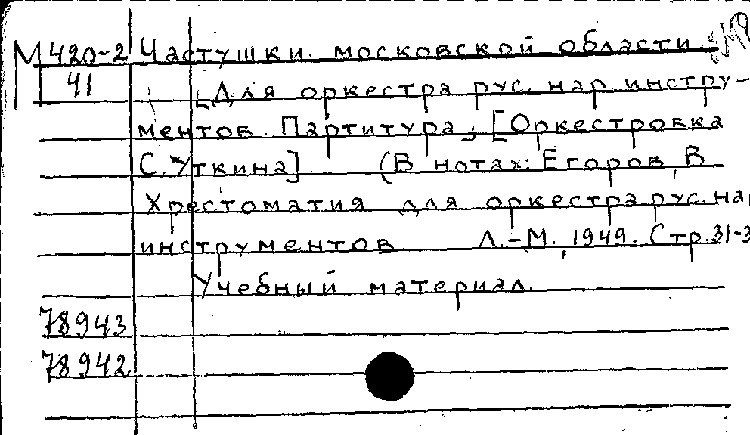 М 420-2 Частушки московской области
41 [Для оркестра рус. нар. инстру-
ментов. Партитура. [Оркестровка
С. Уткина] (В нотах: Егоров, В.
Хрестоматия для оркестра рус. нар
инструментов Л.-М., 1949. Стр. 31-3
Учебный материал.
78943
78942